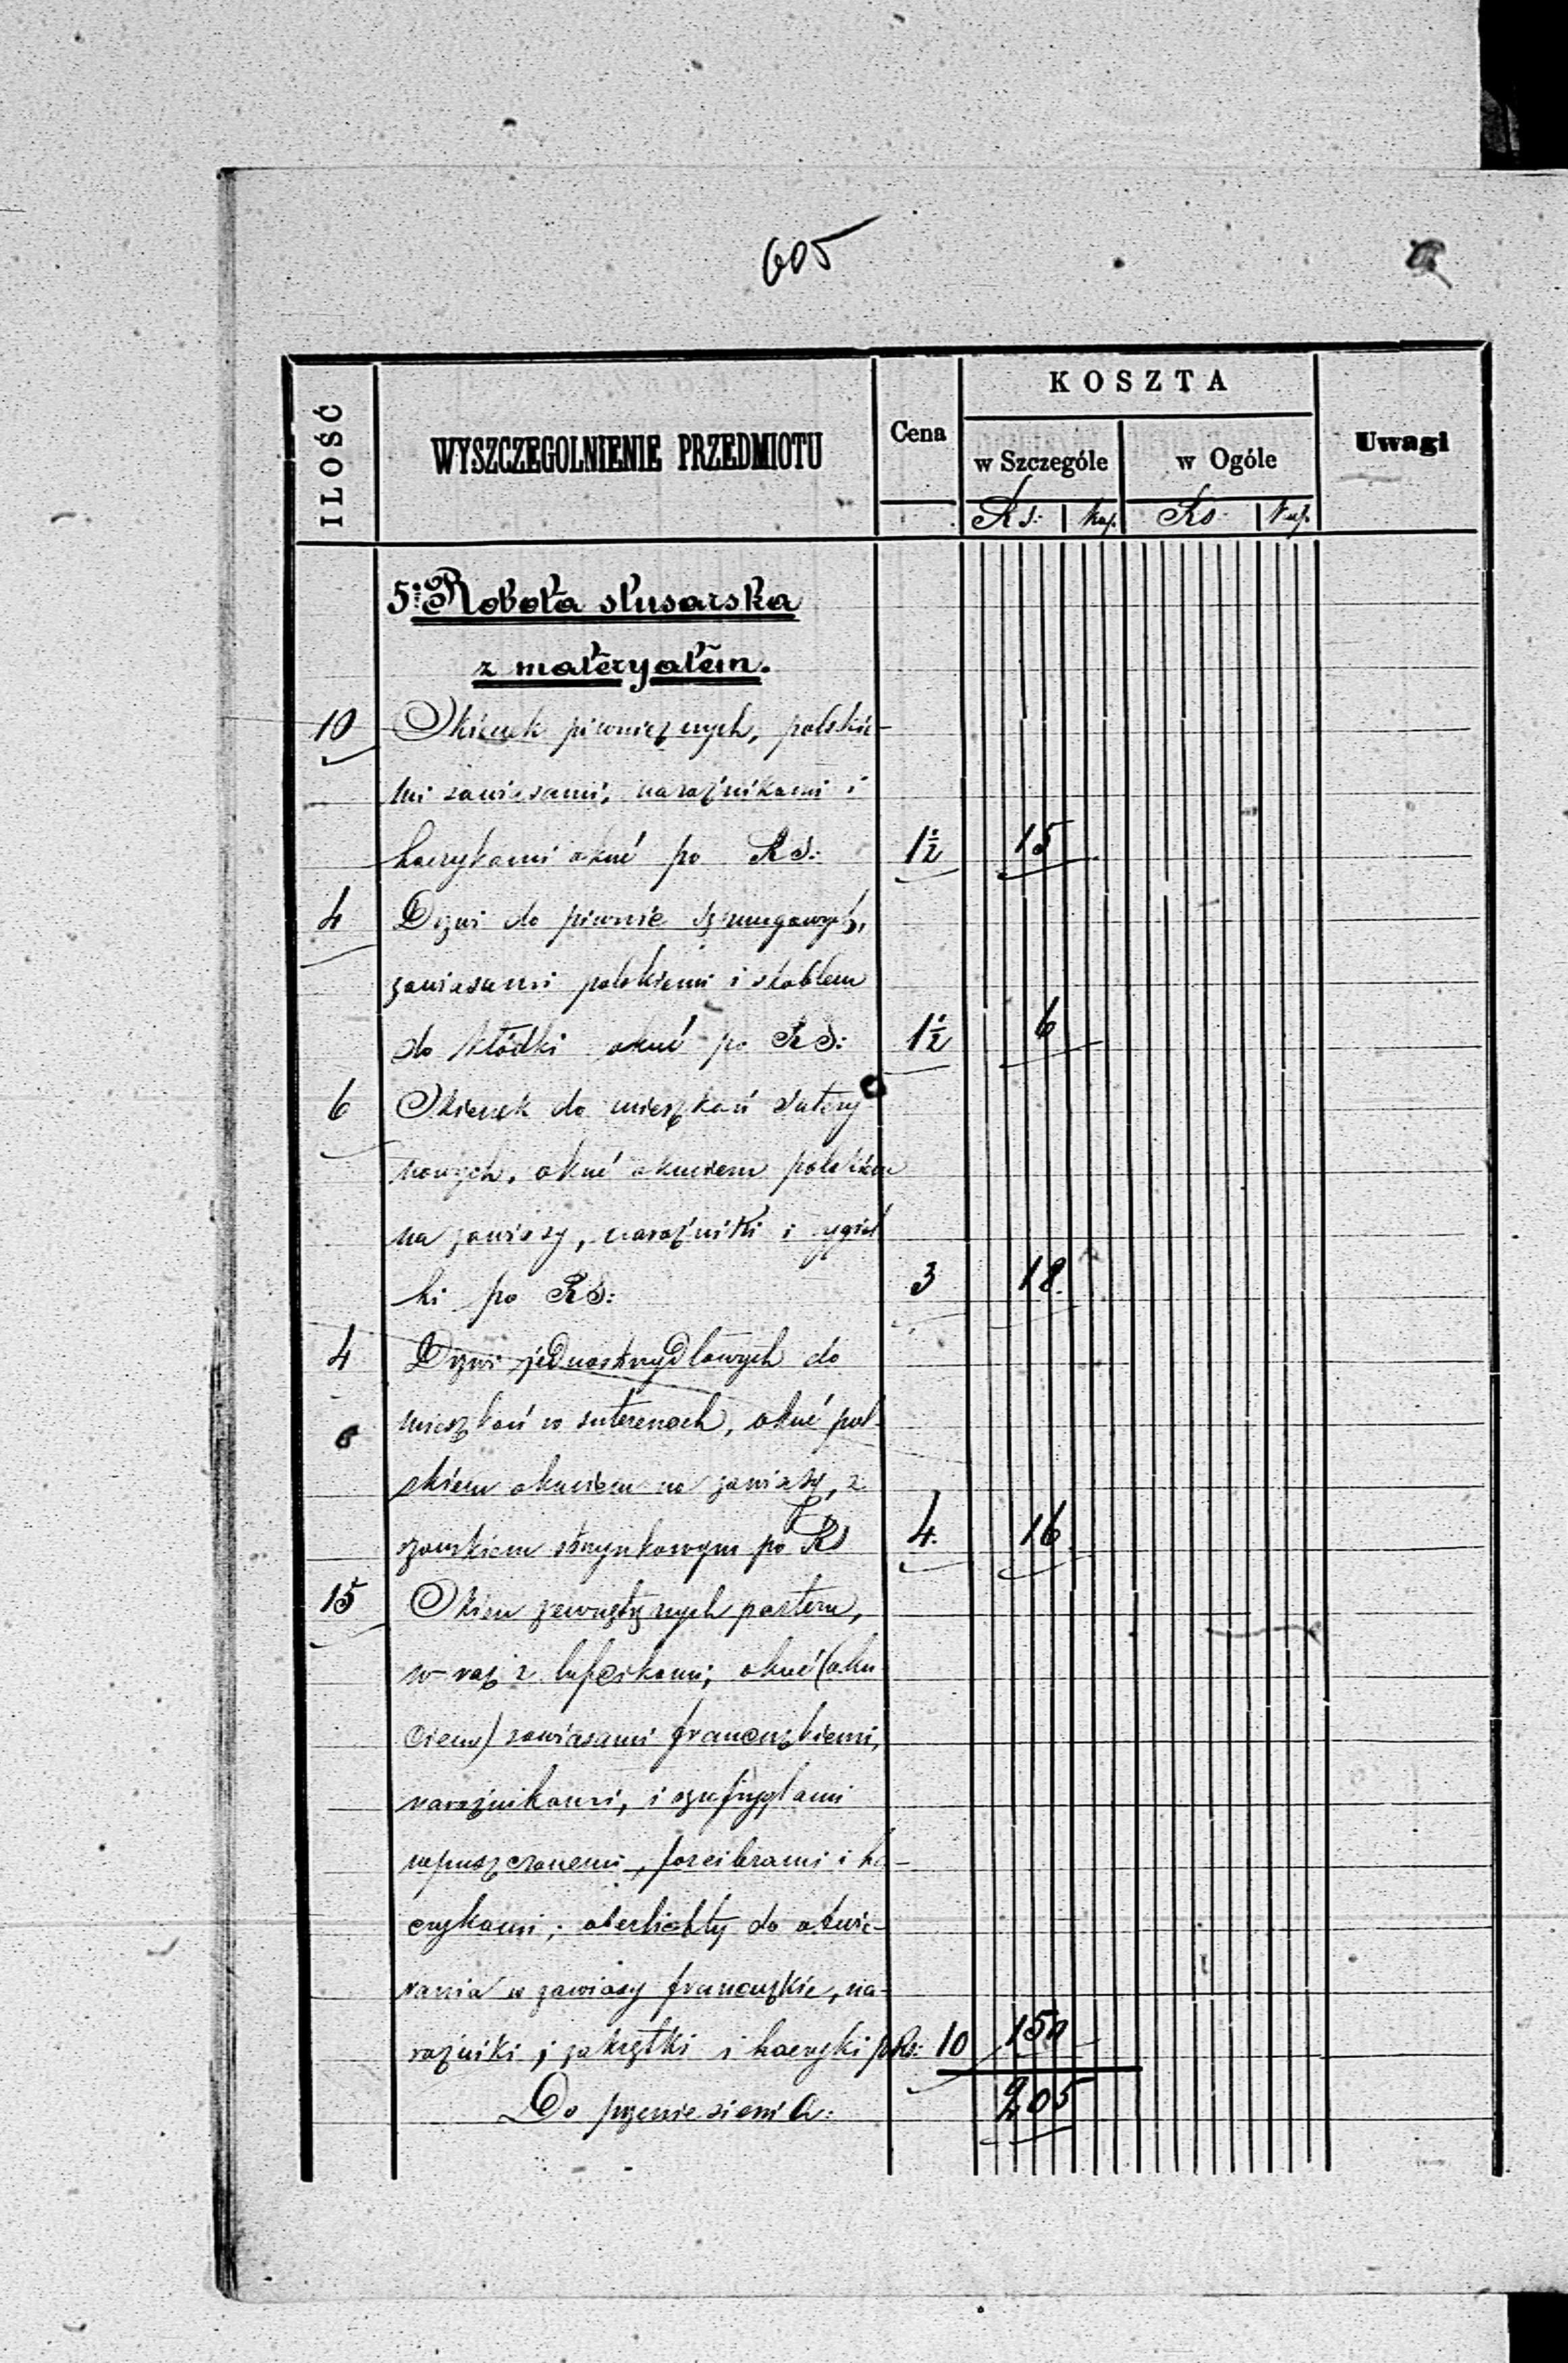 605
ILOŚĆ
WYSZCZEGOLNIENIE PRZEDMIOTU
Cena
KOSZTA
w Szczególe
w Ogóle
Uwagi
Rs: Kop. Rs. Kop.
5: Robota slusarska
z materyałem.
10 Okienek piwnicznych, polskie-
mi zawiasami, narożnikami i
haczykami okuć po RS: 1½ 15
4 Drzwi do piwnic szpungowych,
zawiasami polskiemi i skoblem
do kłódki okuć po RS: 1½ 6
6 Okienek do mieszkań sutery
nowych, okuć okuciem polskim
na zawiasy, narożniki i rygiel
ki po RS: 3 18.
4 Drzwi jednoskrzydłowych do
mieszkań w suterenach, okuć pol-
skiem okuciem na zawiasy, z
zamkiem skrzynkowym po RS 4. 16
15 Okien zewnętrznych parteru,
w raz z lufcikami; okuć (oku
ciem) zawiasami francuzkiemi,
narożnikami, i szufryglami
wpuszczanemi, forcibrami i ha-
czykami; oberlichty do otwie-
rania w zawiasy francuzkie, na-
rożniki, zakrętki i haczyki po Rs: 10 150
Do przeniesienia: 205